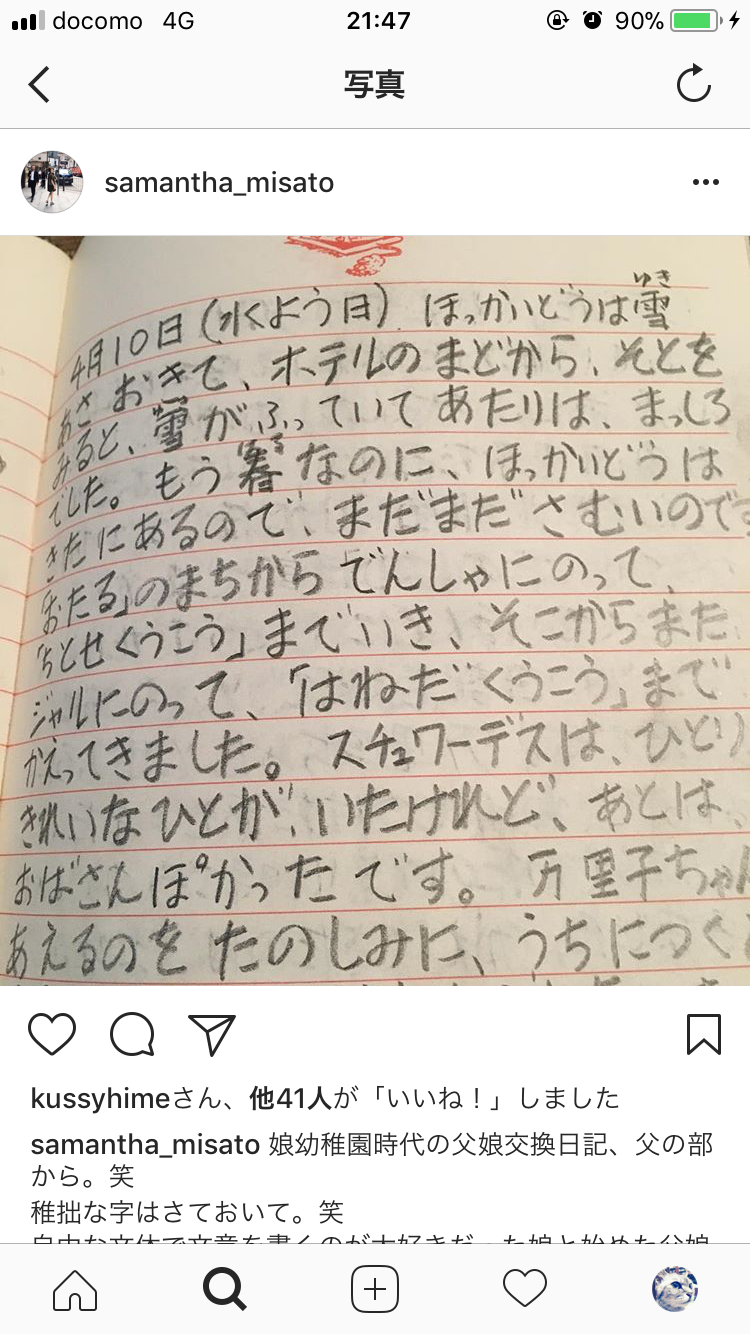 docomo 4G 21:47 90%
写真
samantha_misato
ゆき
4月10日(水くよう日) ほっかいどうは雪
あさ おきて、ホテルのまどから、そとを
みると、雪がふっていてあたりは、まっしろ
はる
でした。もう春なのに、ほっかいどうは
きたにあるので、まだまださむいので
おたる」のまちからでんしゃにのって、
「ちとせくうこう」までいき、そこからまた
ジャルにのって、「はねだくうこう」まで
かえってきました。スチュワーデスは、ひとり
きれいなひとが、いたけれど、あとは、
おばさんぽかったです。万里子ちゃん
あえるのをたのしみに、うちにつく
kussyhimeさん、他41人が「いいね！」しました
samantha_misato 娘幼稚園時代の父娘交換日記、父の部
から。笑
稚拙な字はさておいて。笑
自由な文体で文章を書くのが大好きだった娘と始めた父娘